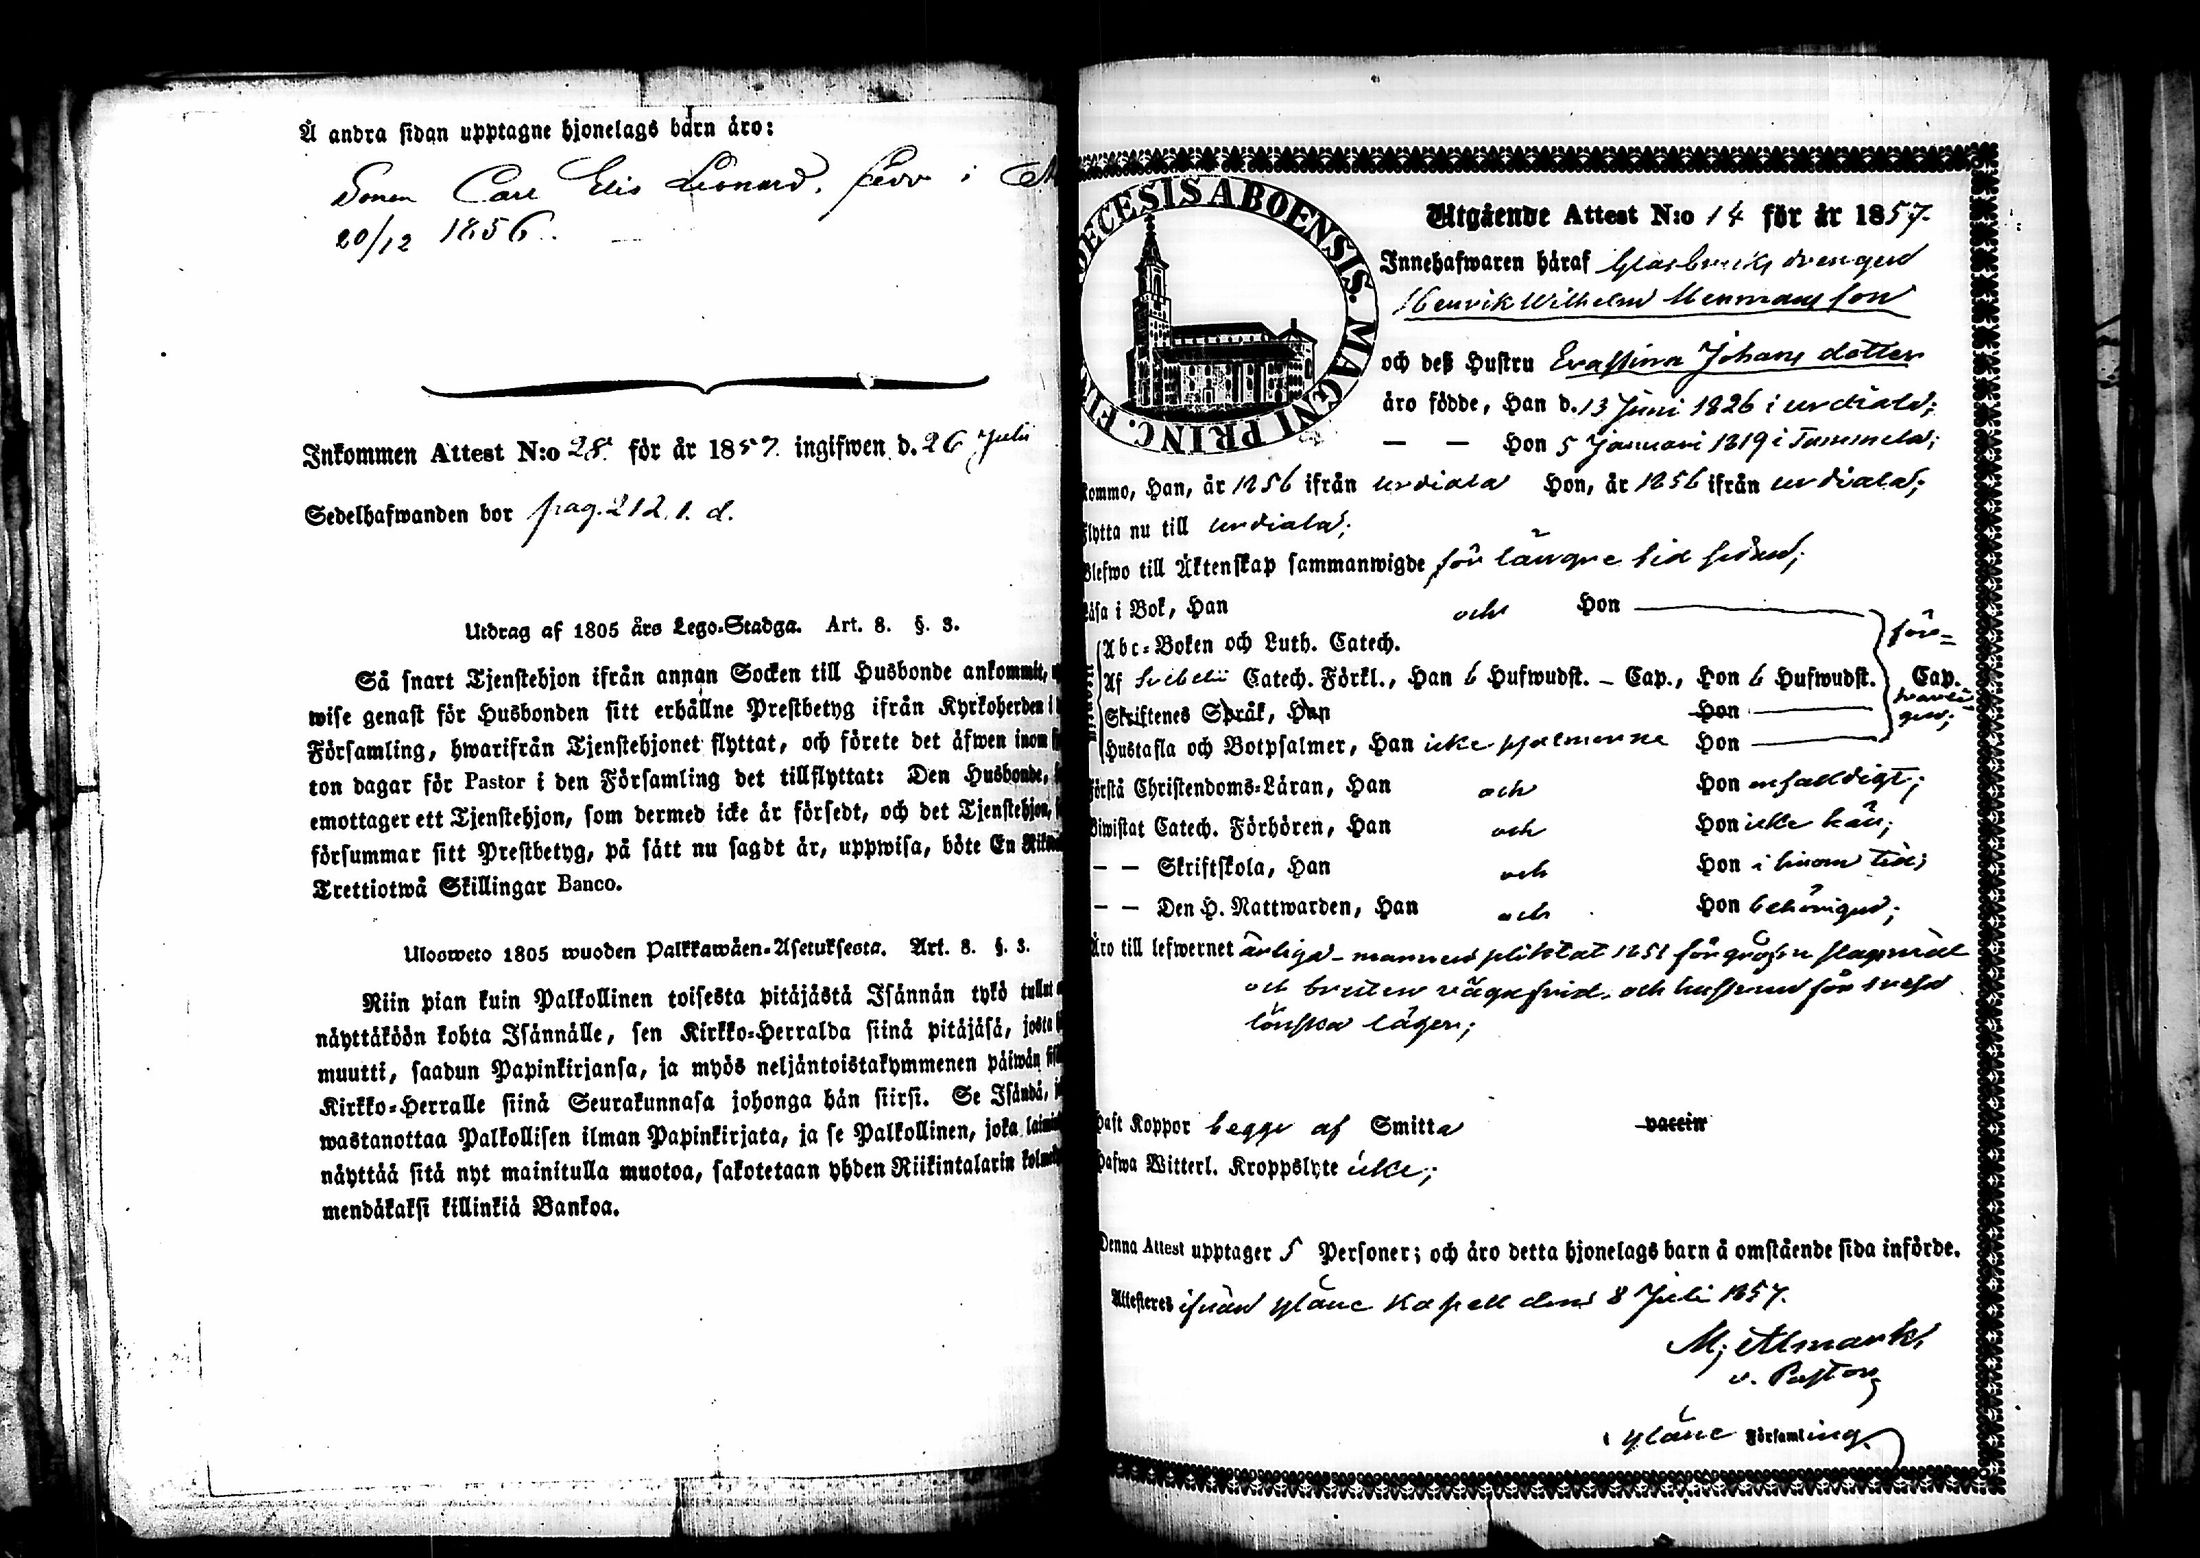 Å andra sidan upptagne hjonelags barn äro:
Sonen Carl Elis Leonard, född i
20/12 1856.
Inkommen Attest N:o 28 för år 1857 ingifwen d. 26 Julii
Sedelhafwanden bor pag. 212. 1. d.
Utdrag af 1805 års Lego-Stadga. Art. 8. §. 3.
Så snart Tjenstehjon ifrån annan Socken till Husbonde ankommit,
wise genast för Husbonden sitt erhållne Prestbetyg ifrån Kyrkoherden i
Församling, hwarifrån Tjenstehjonet flyttat, och förete det äfwen inom
ton dagar för Pastor i den Församling det tillflyttat: Den Husbonde,
emottager ett Tjenstehjon, som dermed icke är försedt, och det Tjenstehjon,
försummar sitt Prestbetyg, på sätt nu sagdt är, uppwisa, böte En
Trettiotwå Skillingar Banco.
Ulosweto 1805 wuoden Palkkawäen-Asetuksesta. Art. 8. §. 3.
Niin pian kuin Palkollinen toisesta pitäjästä Isännän tykö tullut
näyttäköön kohta Isännälle, sen Kirkko-Herralda siinä pitäjäsä, josta
muutti, saadun Papinkirjansa, ja myös neljäntoistakymmenen päiwän
Kirkko-Herralle siinä Seurakunnasa johonga hän siirsi. Se Isändä,
wastanottaa Palkollisen ilman Papinkirjata, ja se Palkollinen, joka
näyttää sitä nyt mainitulla muotoa, sakotetaan yhden Riikintalarin
mendäkaksi killinkiä Bankoa.
DECESIS ABOENSIS. MAGNI PRINC.
Utgående Attest N:o 14 för år 1857.
Innehafwaren häraf Glasbruks drengen
Henrik Wilhelm Hermansson
och deß Hustru Evastina Johans dotter
äro födde, Han d. 13 Juni 1826 i Urdiala;
— — Hon 5 Januari 1819 i Tammela;
kommo, Han, år 1856 ifrån Urdiala Hon, år 1856 ifrån Urdiala;
flytta nu till Urdiala;
Blefwo till Äktenskap sammanwigde för längre tid sedan;
Läsa i Bok, Han och Hon för=
Abc-Boken och Luth. Catech.
Af Svebelii Catech. Förkl., Han 6 Hufwudst. – Cap., Hon 6 Hufwudst. Cap.
Skriftenes Språk, Han Hon
Hustafla och Botpsalmer, Han icke psalmerne Hon
Förstå Christendoms-Läran, Han och Hon enfaldigt;
Biwistat Catech. Förhören, Han och Hon icke här;
— — Skriftskola, Han och Hon i sinom tid;
— — Den H. Nattwarden, Han och Hon behörigen;
Äro till lefwernet ärliga – mannen pliktat 1851 för gröfre slagsmål
och bruten vägafrid, och hustrun för tvefald
lönska läger;
Haft Koppor begge af Smitta vaccin
Hafwa Witterl. Kroppslyte icke;
Denna Attest upptager 5 Personer; och äro detta hjonelags barn å omstående sida införde.
Attesteras ifrån Yläne Kapell den 8 Juli 1857.
M; Almark,
v. Pastor
i Yläne Församling.